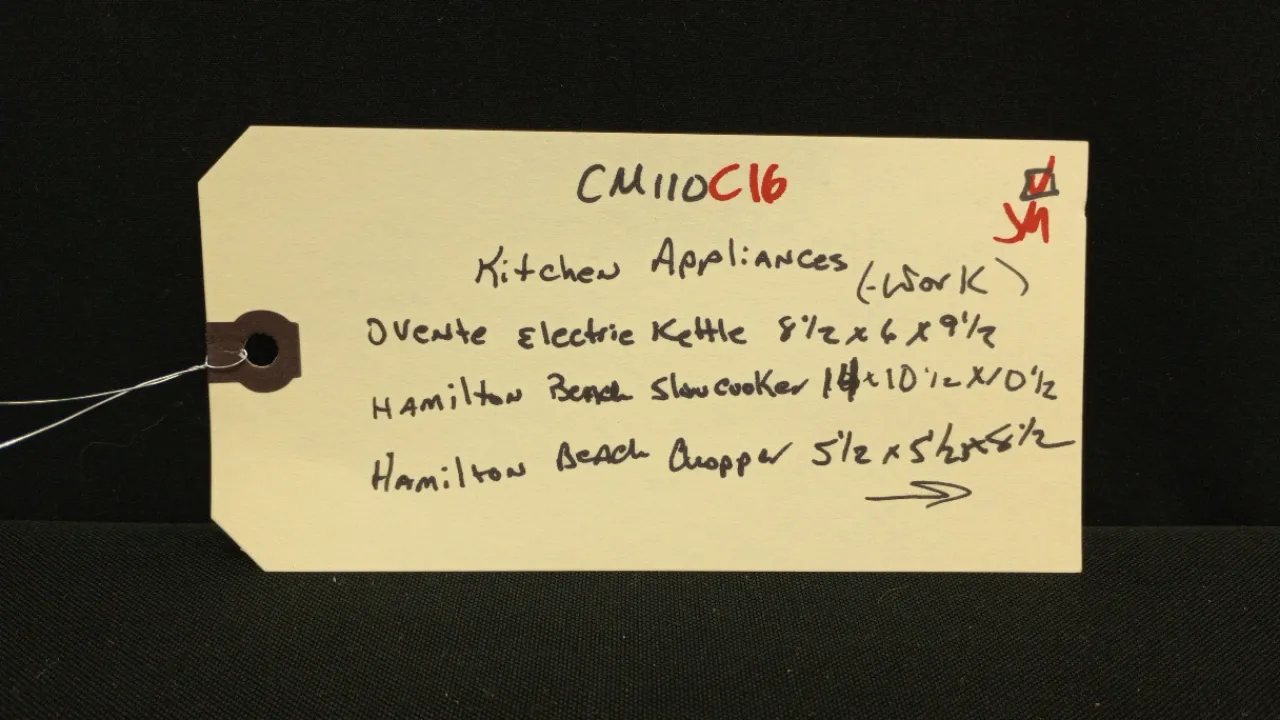 CM110C16
JM
Kitchen Appliances (-Work)
Ovente Electric Kettle 8 1/2 x 6 x 9 1/2
Hamilton Beach Slowcooker x 10 1/2 x 10 1/2
Hamilton Beach Chopper 5 1/2 x 5 1/2 x 8 1/2